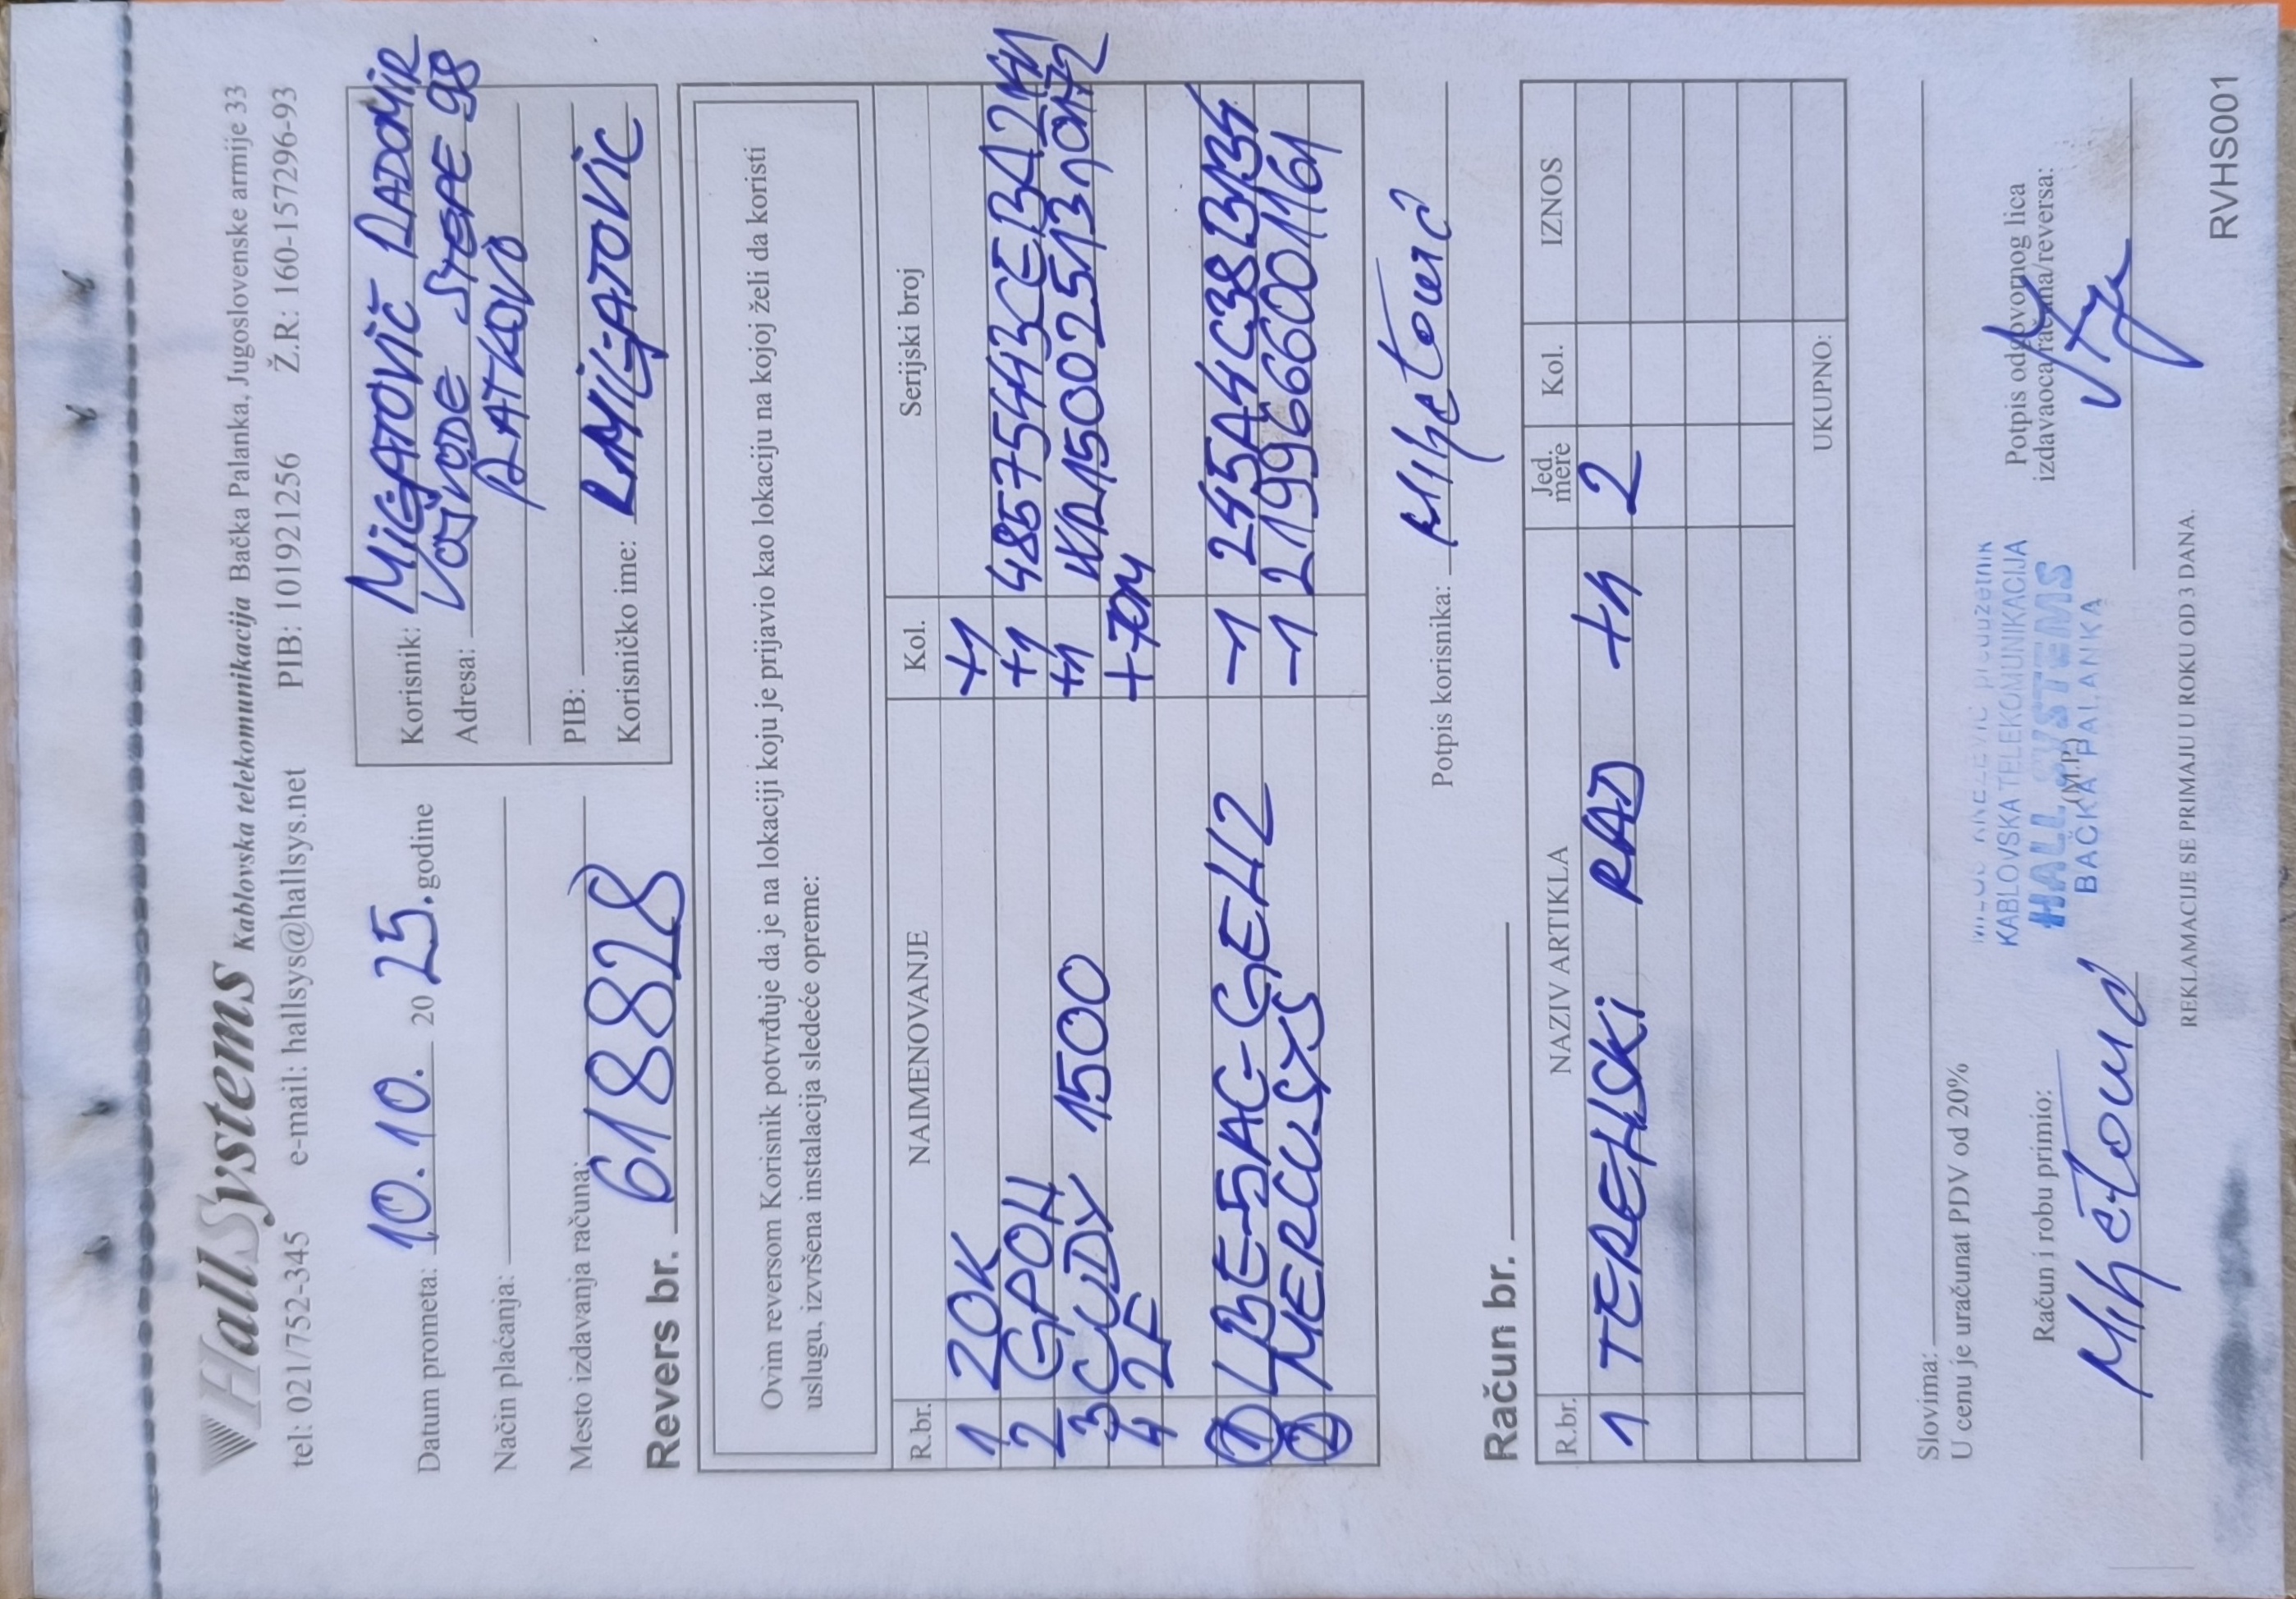 HallSystems Kablovska telekomunikacija Bačka Palanka, Jugoslovenske armije 33
tel: 021/752-345 e-mail: hallsys@hallsys.net PIB: 101921256 Ž.R: 160-157296-93
Datum prometa: 10.10. 2025. godine
Način plaćanja:
Mesto izdavanja računa:
Korisnik: MIGATOVIĆ RADOMIR
Adresa: VOJVODE STEPE 98
RATKOVO
PIB:
Korisničko ime: RMIGATOVIC
Revers br. 618828
Ovim reversom Korisnik potvrđuje da je na lokaciji koju je prijavio kao lokaciju na kojoj želi da koristi
uslugu, izvršena instalacija sledeće opreme:
R.br. NAIMENOVANJE Kol. Serijski broj
1 ZOK +1
2 GPON +1
3 CUDY 1500 +1
4 2F +70M
1 LBE-5AC-GEN2 -1 245A4C38B134
2 MERCUSYS -1 2199660011161
Potpis korisnika:
Račun br.
R.br. NAZIV ARTIKLA Jed. mere Kol. IZNOS
1 TERENSKI RAD +1 2
UKUPNO:
Slovima:
U cenu je uračunat PDV od 20%
Račun i robu primio:
(M.P.)
KABLOVSKA TELEKOMUNIKACIJA
HALL SYSTEMS
BAČKA PALANKA
Potpis odgovornog lica
izdavaoca računa/reversa:
REKLAMACIJE SE PRIMAJU U ROKU OD 3 DANA.
RVHS001